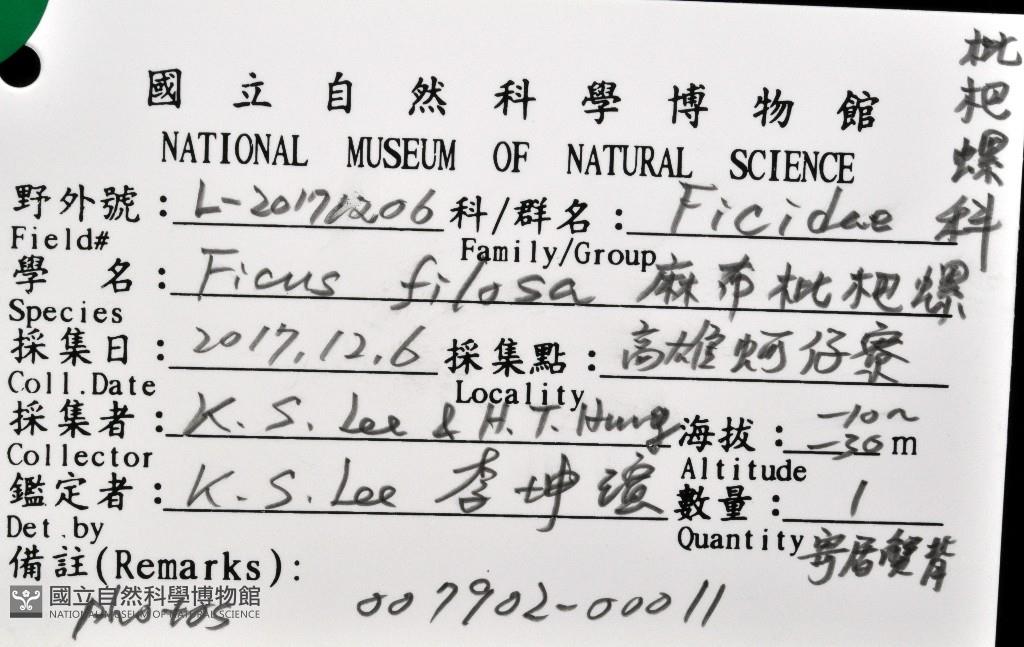 國立自然科學博物館
NATIONAL MUSEUM OF NATURAL SCIENCE
枇杷螺科
野外號：L-20171206 科/群名：Ficidae
Field# Family/Group
學名：Ficus filosa 麻布枇杷螺
Species
採集日：2017.12.6 採集點：高雄蚵仔寮
Coll.Date Locality
採集者：K. S. Lee & H. T. Hung 海拔：-10~-30m
Collector Altitude
鑑定者：K. S. Lee 李坤瑄 數量：1
Det.by Quantity 寄居蟹背
備註(Remarks)：
photos 007902-00011
國立自然科學博物館
NATIONAL MUSEUM OF NATURAL SCIENCE